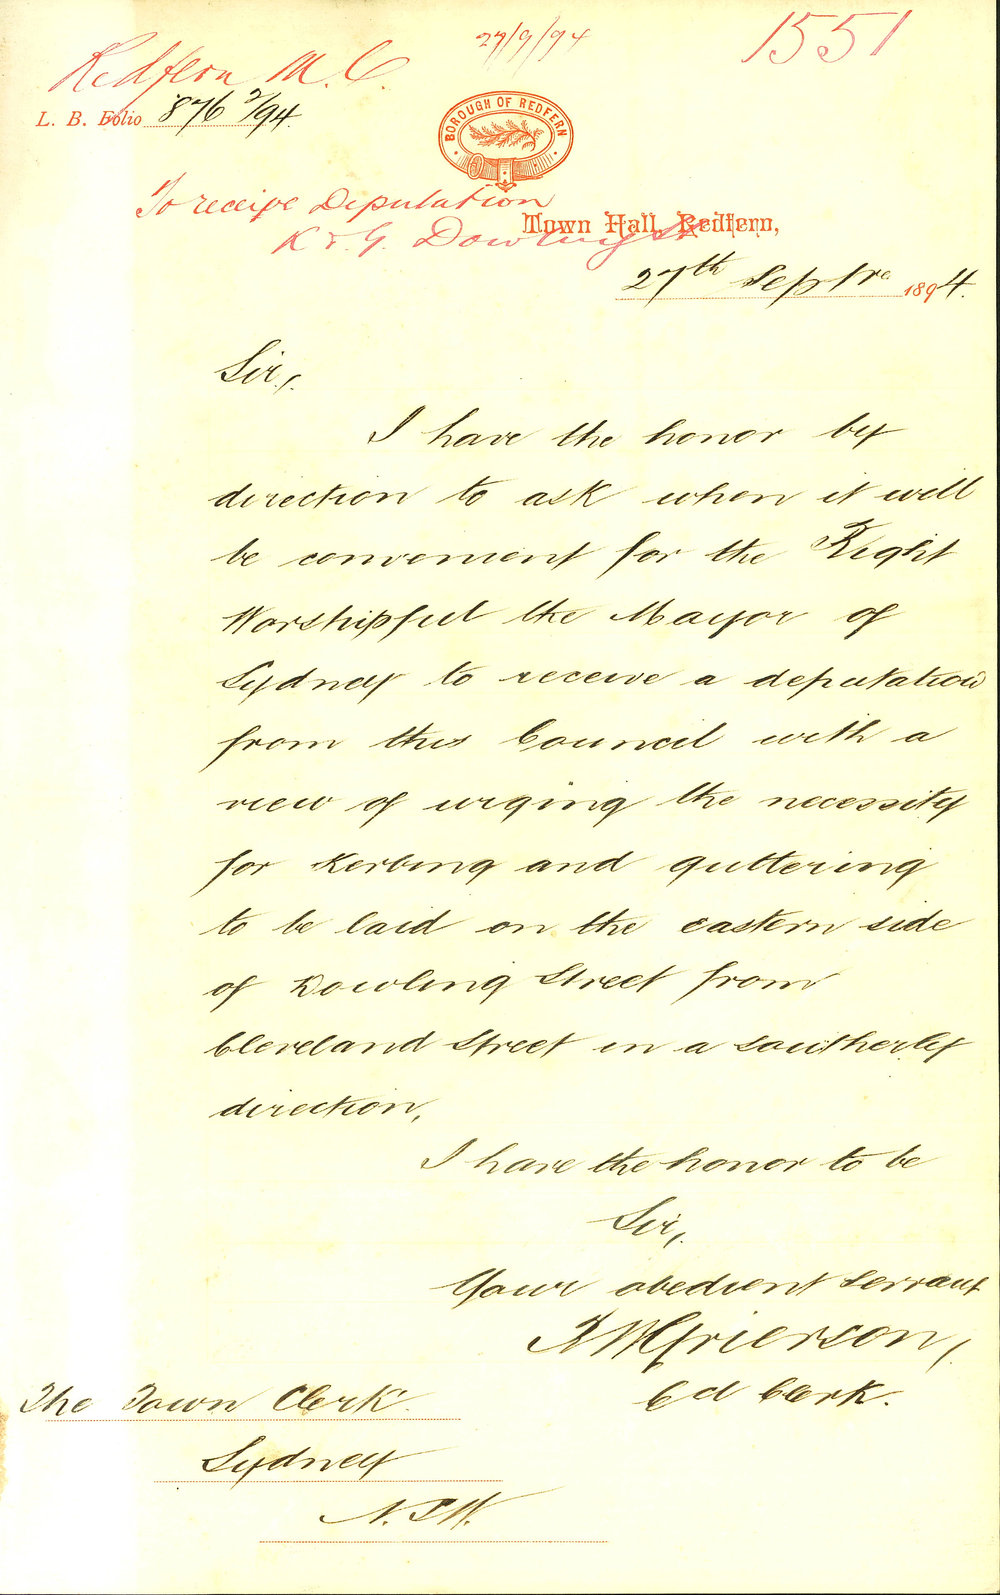 27/9/94
1551
Redfern M. C
L. B. Folio 876 2/94.
BOROUGH OF REDFERN
To receive Deputation
K & G. Dowling St
Town Hall, Redfern,
27th Septr 1894.
Sir,
I have the honor by
direction to ask when it will
be convenient for the Right
Worshipful the Mayor of
Sydney to receive a deputation
from this Council with a
view of urging the necessity
for Kerbing and guttering
to be laid on the eastern side
of Dowling Street from
Cleveland Street in a southerly
direction,
I have the honor to be
Sir,
Your obedient servant
Grierson,
Cl Clerk.
The Town Clerk
Sydney
N.S.W.